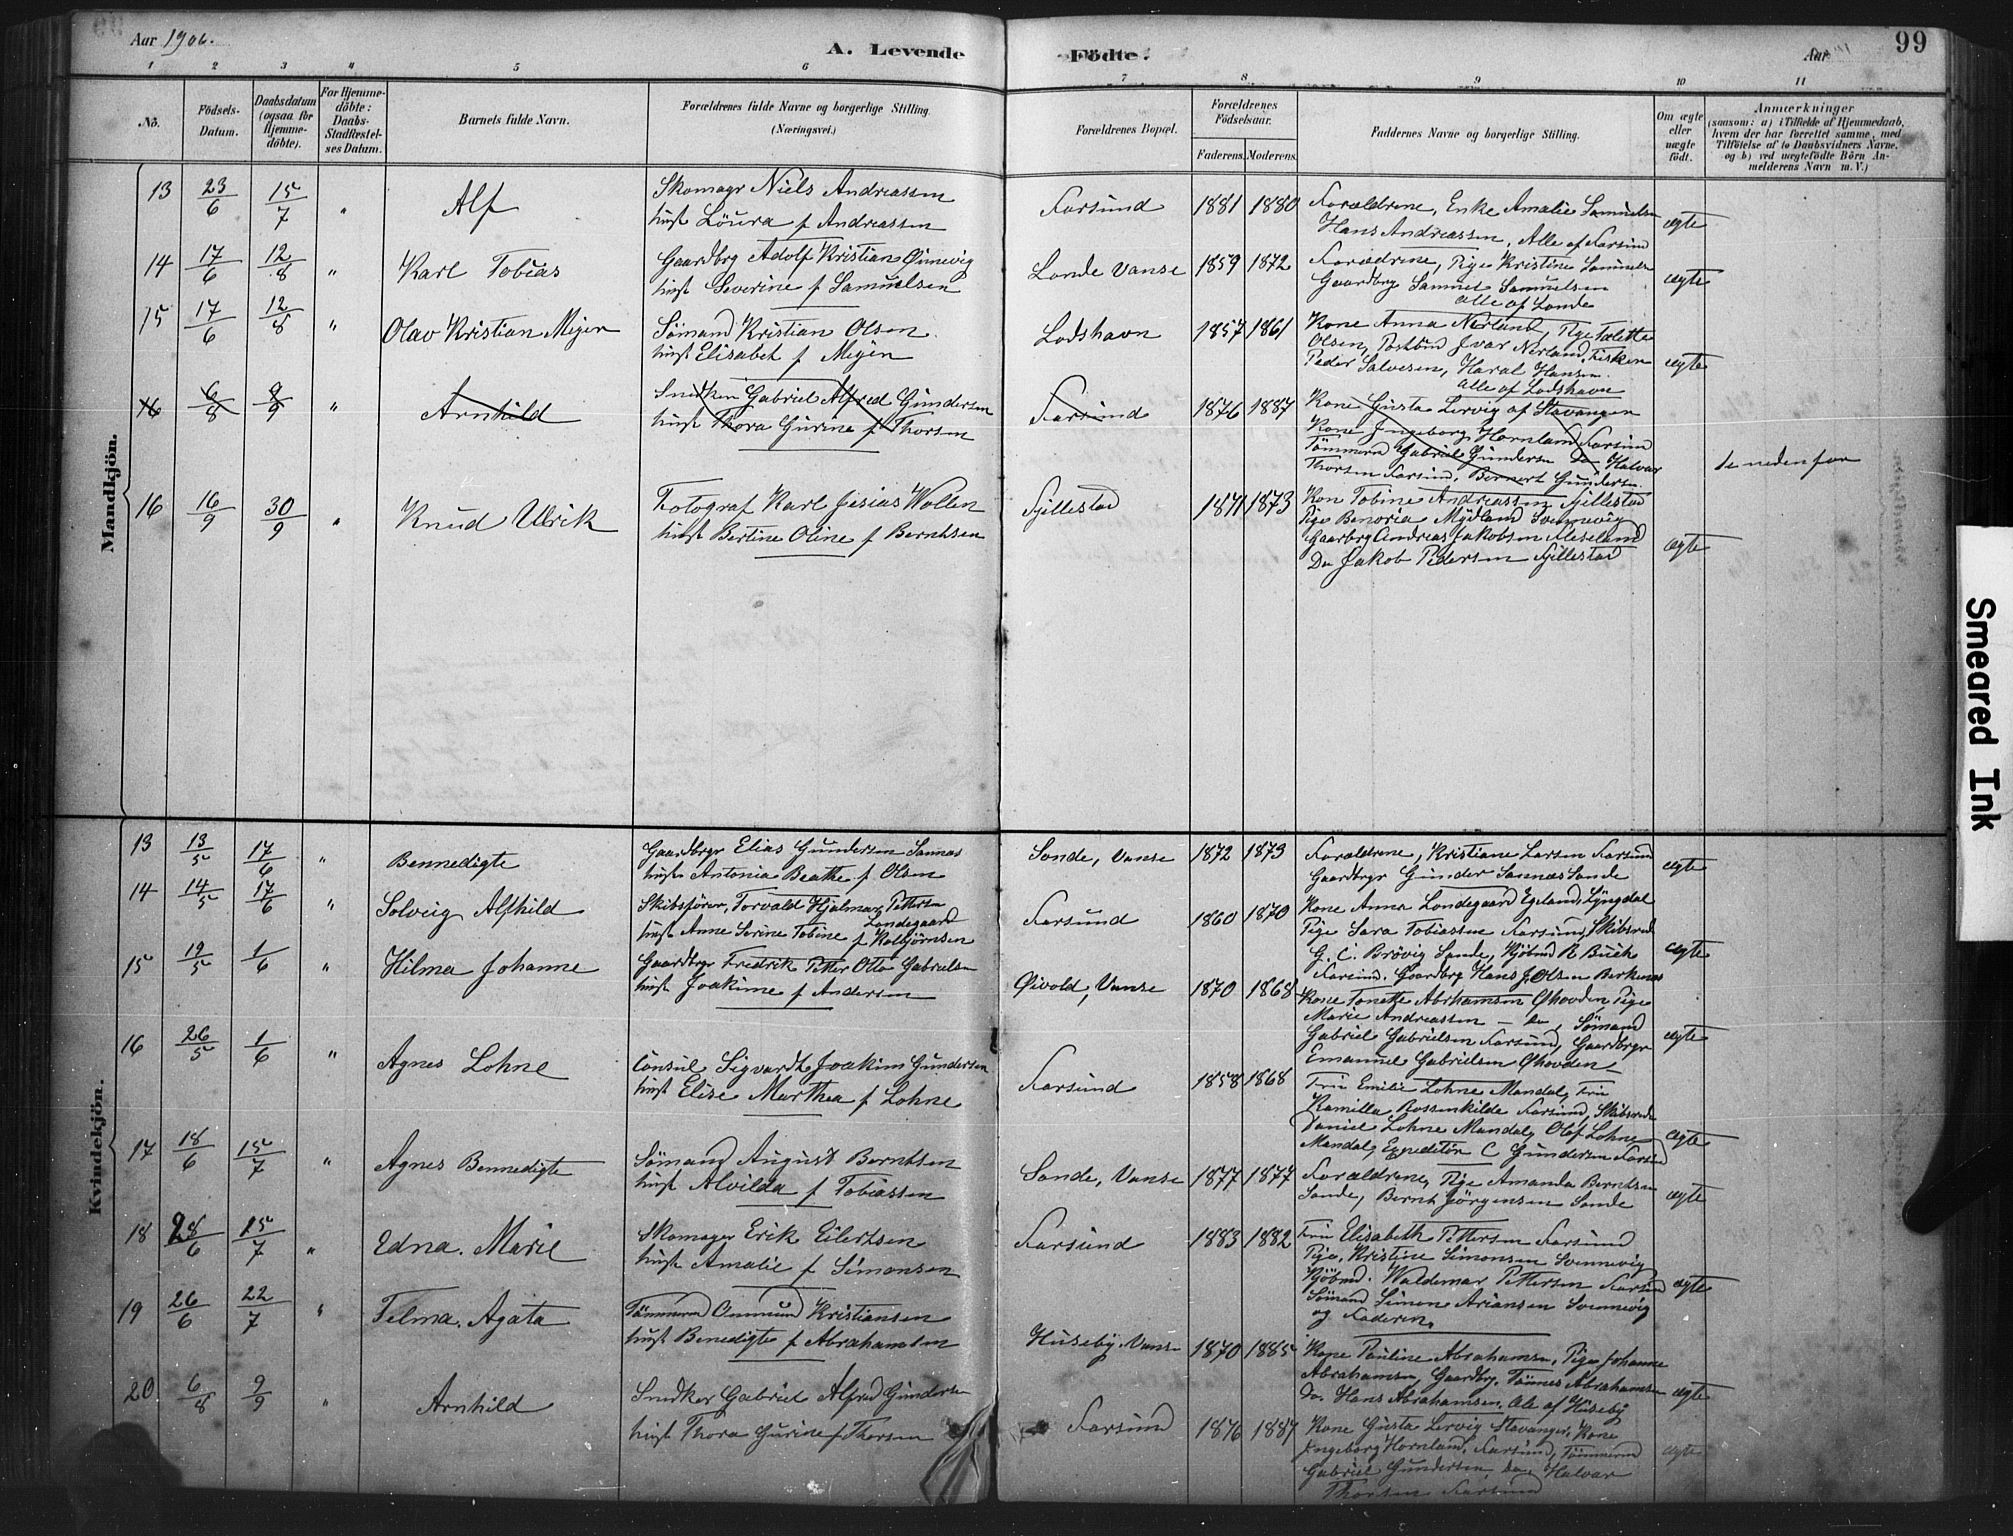 Aar 1906.
A. Levende
Födte.
Aar
99
1 2 3 4 5 6 7 8 9 10 11
No.
Födsels-Datum.
Daabsdatum (ogsaa for Hjemme-döbte).
For Hjemme-döbte: Daabs-Stadfæstel-ses Datum.
Barnets fulde Navn.
Forældrenes fulde Navne og borgerlige Stilling (Næringsvei.)
Forældrenes Bopæl.
Forældrenes Födselsaar.
Faderens. Moderens.
Faddernes Navne og borgerlige Stilling.
Om ægte eller uægte födt.
Anmærkninger
(saasom: a) i Tilfælde af Hjemmedaab,
hvem der har forrettet samme, med
Tilföielse af to Daabsvidners Navne.
og b) ved uægtefödte Börn An-
melderens Navn m. V.)
Mandkjön.
13 23/6 15/7 " Alf
Skomagr Niels Andreassen
hust Löura f Andreassen
Farsund 1881 1880
Forældrene, Enke Amalie Samuelsen
Hans Andreassen, Alle af Farsund
ægte
14 17/6 12/8 " Karl Tobias
Gaardbrg Adolf Kristian
hust Severine f Samuelsen
Londe Vanse 1859 1872
Forældrene, Pige Kristine Samuelsen
Gaardbrg Samuel Samuelsen
alle af Londe
ægte
15 17/6 12/8 " Olav Kristian Meyer
Sömand Kristian Olsen
hust Elisabet f Meyer
Lodshavn 1857 1861
Kone Anna Nerland, Pige Talette
Olsen, Postbud Ivar Nerland, Fisker
Peder Salvesen, Haral Hansen.
alle af Lodshavn
ægte
16 6/8 9/9 " Arnhild
Snedker Gabriel Alfred Gundersen
hust Thora Gurine f Thorsen
Farsund 1876 1887
Kone Gusta Lervig af Stavanger
Kone Ingeborg Hornland Farsund
Tömmerm Gabriel Gundersen Do Halvor
Thorsen Farsund, Berner Gundersen.
se nedenfor
16 16/9 30/9 " Knud Ulrik
Fotograf Karl Jesias Wollen
hust Bertine Oline f Berntsen
Fjillestad 1871 1873
Kon Tobine Andreassen Fjillestad
Pige Benoria Mydland Svennevig
Gaarbrg Andreas Jakobsen
Do Jakob Pedersen Fjillestad
ægte
Kvindekjön.
13 13/5 17/6 " Bennedigte
Gaardbrgr Elias Gundersen Sannes
hustr Antonia Beathe f Olsen
Sande, Vanse 1872 1873
Forældrene, Kristiane Larsen Farsund
Gaardbrgr Gunder Sannes Sande
ægte
14 14/5 17/6 " Solveig Alfhild
Skibsförer, Torvald Hjalmar Pettersen
Londegaard
hust Anne Serine Tobine f Kolbjörnsen
Farsund 1860 1870
Kone Anna Londegaard Egeland, Lyngdal
Pige Sara Tobiassen Farsund, Skibsred
G. C. Brövig Sande, Kjöbmd R Buch
Farsund. Gaardbrg Hans J. Olsen
ægte
15 12/5 1/6 " Hilma Johanne
Gaardbrgr Fredrik Petter Otto Gabrielsen
hust Joakime f Andersen
Öivold, Vanse 1870 1868
Kone Tonette Abrhamsen Ohovden Pige
Marie Andreassen - Do, Sömand
Gabriel Gabrielsen Farsund, Gaardbrgr
Emanuel Gabrielsen Ohovden
ægte
16 26/5 1/6 " Agnes Lohne
Consul Sigvardt Joakim Gundersen
hust Elise Marthea f Lohne
Farsund 1858 1868
Fru Emilie Lohne Mandal, Fru
Kamilla Rossenkilde Farsund, Skibsrede
Daniel Lohne Mandal, Olaf Lohne
Mandal, Expeditör C Gundersen Farsund
ægte
17 18/6 15/7 " Agnes Bennedigte
Sömand August Berntsen
hust Alvilda f Tobiassen
Sande, Vanse 1877 1877
Forældrene, Pige Amanda Berntsen
Sande, Bernt Jörgensen Sande
ægte
18 28/6 15/7 " Edna. Marie
Skomager Erik Eilertsen
hust Amalie f Simonsen
Farsund 1883 1882
Fru Elisabeth Pettersen Farsund
Pige, Kristine Simonsen Svennevig
Kjöbmd. Waldemar Pettersen Farsund
Sömand Simon Ariansen Svennevig
og Faderen.
ægte
19 26/6 22/7 " Telma. Agata
Tömmerm Ommund Kristiansen
hust Benedigte f Abrahamsen
Huseby. Vanse 1870 1885
Kone Pauline Abrahamsen, Pige Johanne
Abrahamsen, Gaardbg. Tönnes Abrahamsen
Do. Hans Abrahamsen. Alle af Huseby
ægte
20 6/8 9/9 " Arnhild
Snedker Gabriel Alfred Gundersen
hust Thora Gurine f Thorsen
Farsund 1876 1887
Kone Gusta Lervig Stavanger, Kone
Ingeborg Hornland, Farsund, Tömmerm
Gabriel Gundersen, Do Halvar
Thorsen Farsund
ægte
Smeared Ink